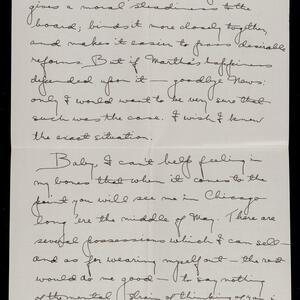 gives a moral steadiness to the
board; binds it more closely together
and makes it easier to pass desirable
reforms. But if Martha's happiness
depended upon it — goodbye News:
only I would want to be very sure that
such was the case. I wish I knew
the exact situation.
Baby, I can't help feeling in
my bones that when it comes to the
point you will see me in Chicago
long 'ere the middle of May. There are
several possessions which I can sell —
and as for wearing myself out — the rest
would do me good — to say nothing
of the mental strain of thinking